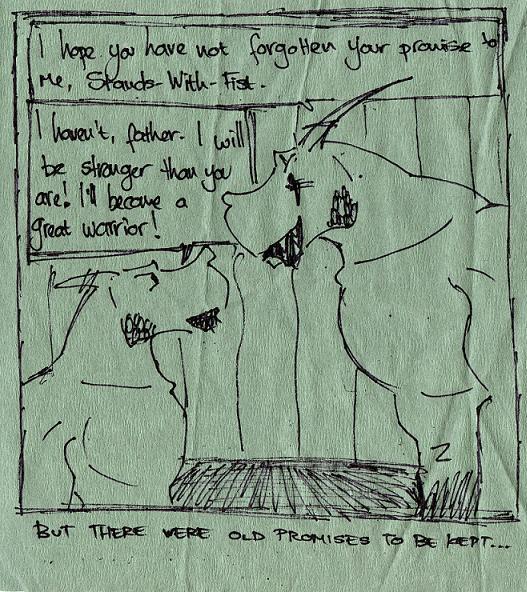 I hope you have not forgotten your promise to
me, Stands-With-Fist.
I haven't, father. I will
be stronger than you
are! I'll become a
great warrior!
BUT THERE WERE OLD PROMISES TO BE KEPT...